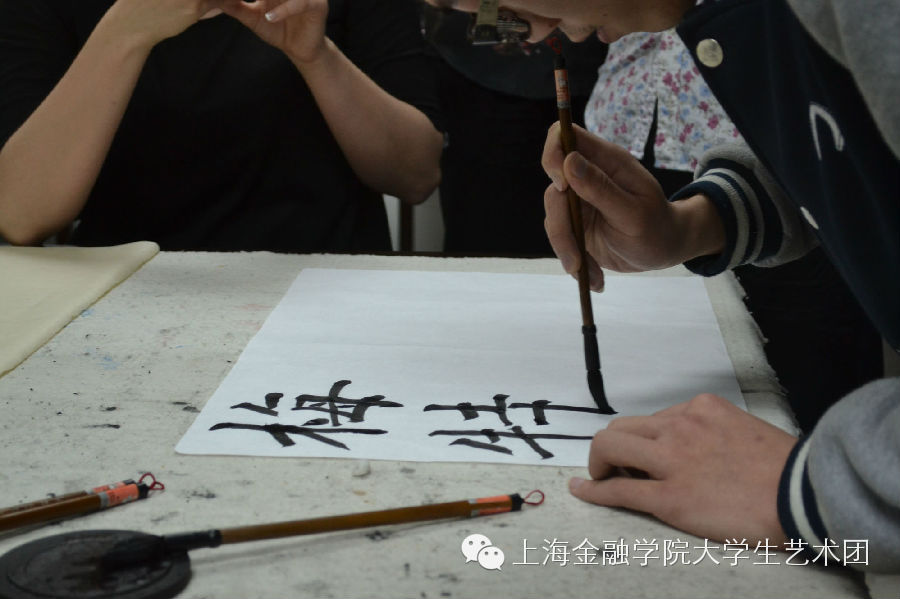 梅桂
上海金融学院大学生艺术团